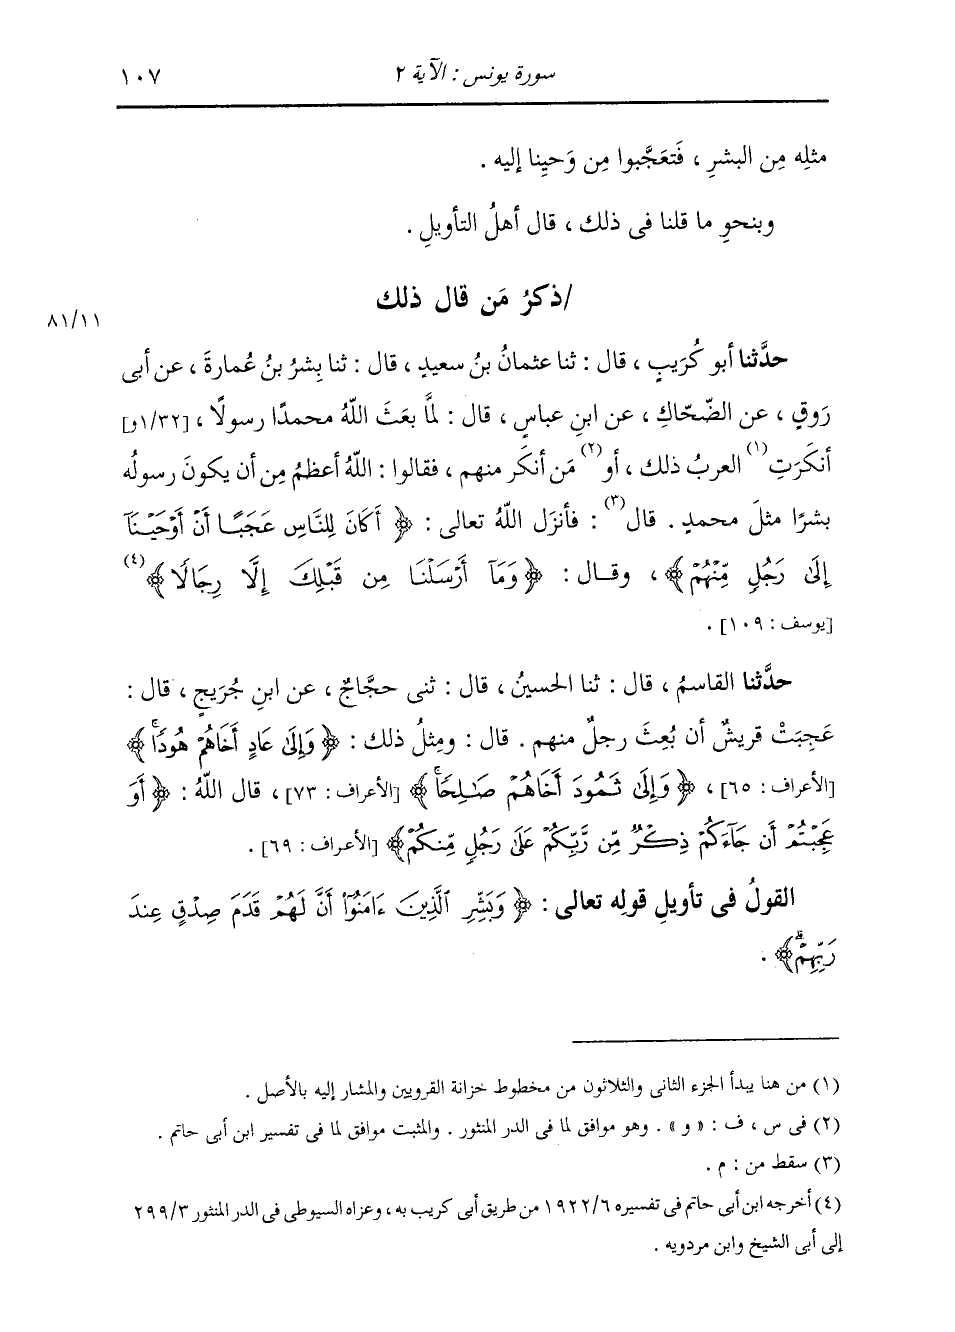 سورة يونس : الآية ٢ ١٠٧
مثلِه مِن البشرِ ، فَتعَجَّبوا مِن وَحيِنا إليه .
وبنحوِ ما قلنا فى ذلك ، قال أهلُ التأويلِ .
/ذكرُ مَن قال ذلك
٨١/١١
حدَّثنا أبو كُرَيبٍ ، قال : ثنا عثمانُ بنُ سعيدٍ ، قال : ثنا بِشرُ بنُ عُمارةَ ، عن أبى
رَوقٍ ، عن الضّحّاكِ ، عن ابنِ عباسٍ ، قال : لمَّا بعَثَ اللَّهُ محمدًا رسولًا ، [١/٣٢و]
أنكَرَتِ(١) العربُ ذلك ، أو(٢) مَن أنكَر منهم ، فقالوا : اللَّهُ أعظمُ مِن أن يكونَ رسولُه
بشرًا مثلَ محمدٍ . قال(٣) : فأنزَل اللَّهُ تعالى : ﴿ أَكَانَ لِلنَّاسِ عَجَبًا أَنْ أَوْحَيْنَآ
إِلَىٰ رَجُلٍ مِّنْهُمْ ﴾ ، وقال : ﴿ وَمَآ أَرْسَلْنَا مِن قَبْلِكَ إِلَّا رِجَالًا ﴾(٤)
[يوسف : ١٠٩] .
حدَّثنا القاسمُ ، قال : ثنا الحسينُ ، قال : ثنى حجَّاجٌ ، عن ابنِ جُرَيجٍ ، قال :
عَجِبَتْ قريشٌ أن بُعِثَ رجلٌ منهم . قال : ومِثلُ ذلك : ﴿ وَإِلَىٰ عَادٍ أَخَاهُمْ هُودًاۚ ﴾
[الأعراف : ٦٥] ، ﴿ وَإِلَىٰ ثَمُودَ أَخَاهُمْ صَـٰلِحًاۚ ﴾ [الأعراف : ٧٣] ، قال اللَّهُ : ﴿ أَوَ
عَجِبْتُمْ أَن جَآءَكُمْ ذِكْرٌ مِّن رَّبِّكُمْ عَلَىٰ رَجُلٍ مِّنكُمْ ﴾ [الأعراف : ٦٩] .
القولُ فى تأويلِ قولِه تعالى : ﴿ وَبَشِّرِ ٱلَّذِينَ ءَامَنُوٓا۟ أَنَّ لَهُمْ قَدَمَ صِدْقٍ عِندَ
رَبِّهِمْۗ ﴾ .
(١) من هنا يبدأ الجزء الثانى والثلاثون من مخطوط خزانة القرويين والمشار إليه بالأصل .
(٢) فى س ، ف : « و » . وهو موافق لما فى الدر المنثور . والمثبت موافق لما فى تفسير ابن أبى حاتم .
(٣) سقط من : م .
(٤) أخرجه ابن أبى حاتم فى تفسيره ١٩٢٢/٦ من طريق أبى كريب به ، وعزاه السيوطى فى الدر المنثور ٢٩٩/٣
إلى أبى الشيخ وابن مردويه .